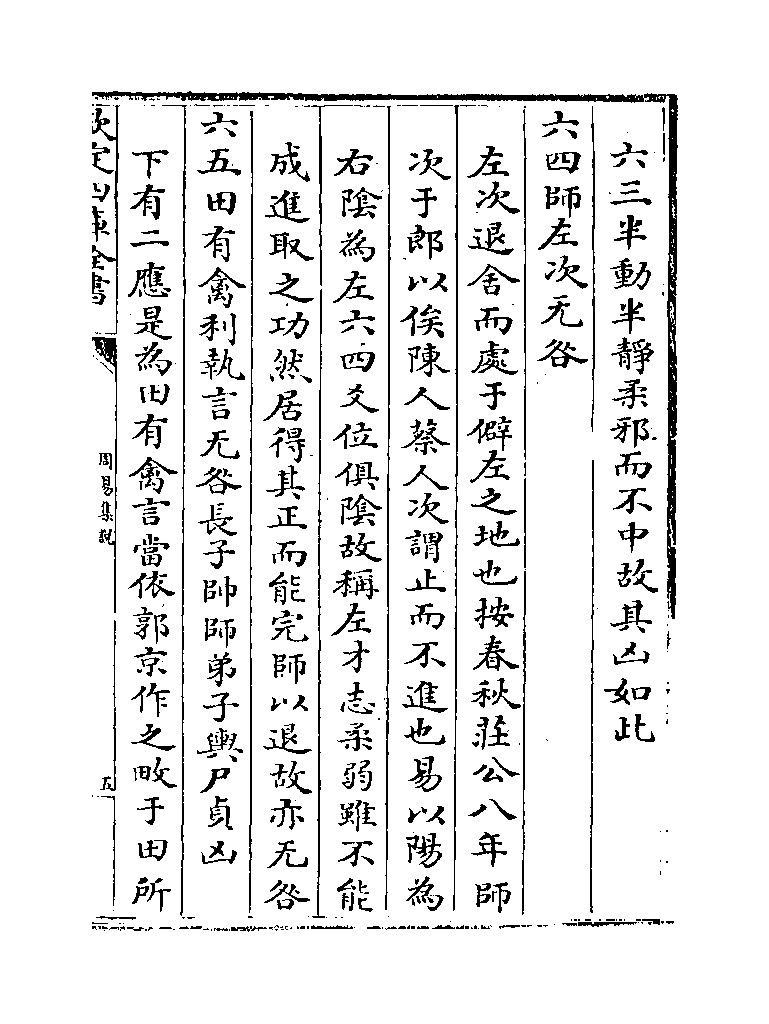 六三半動半靜柔邪而不中故其凶如此
六四師左次无咎
左次退舍而處于僻左之地也按春秋莊公八年師
次于郎以俟陳人蔡人次謂止而不進也易以陽為
右陰為左六四爻位俱陰故稱左才志柔弱雖不能
成進取之功然居得其正而能完師以退故亦无咎
六五田有禽利執言无咎長子帥師弟子輿尸貞凶
下有二應是為田有禽言當依郭京作之畋于田所
欽定四庫全書
周易集說
五